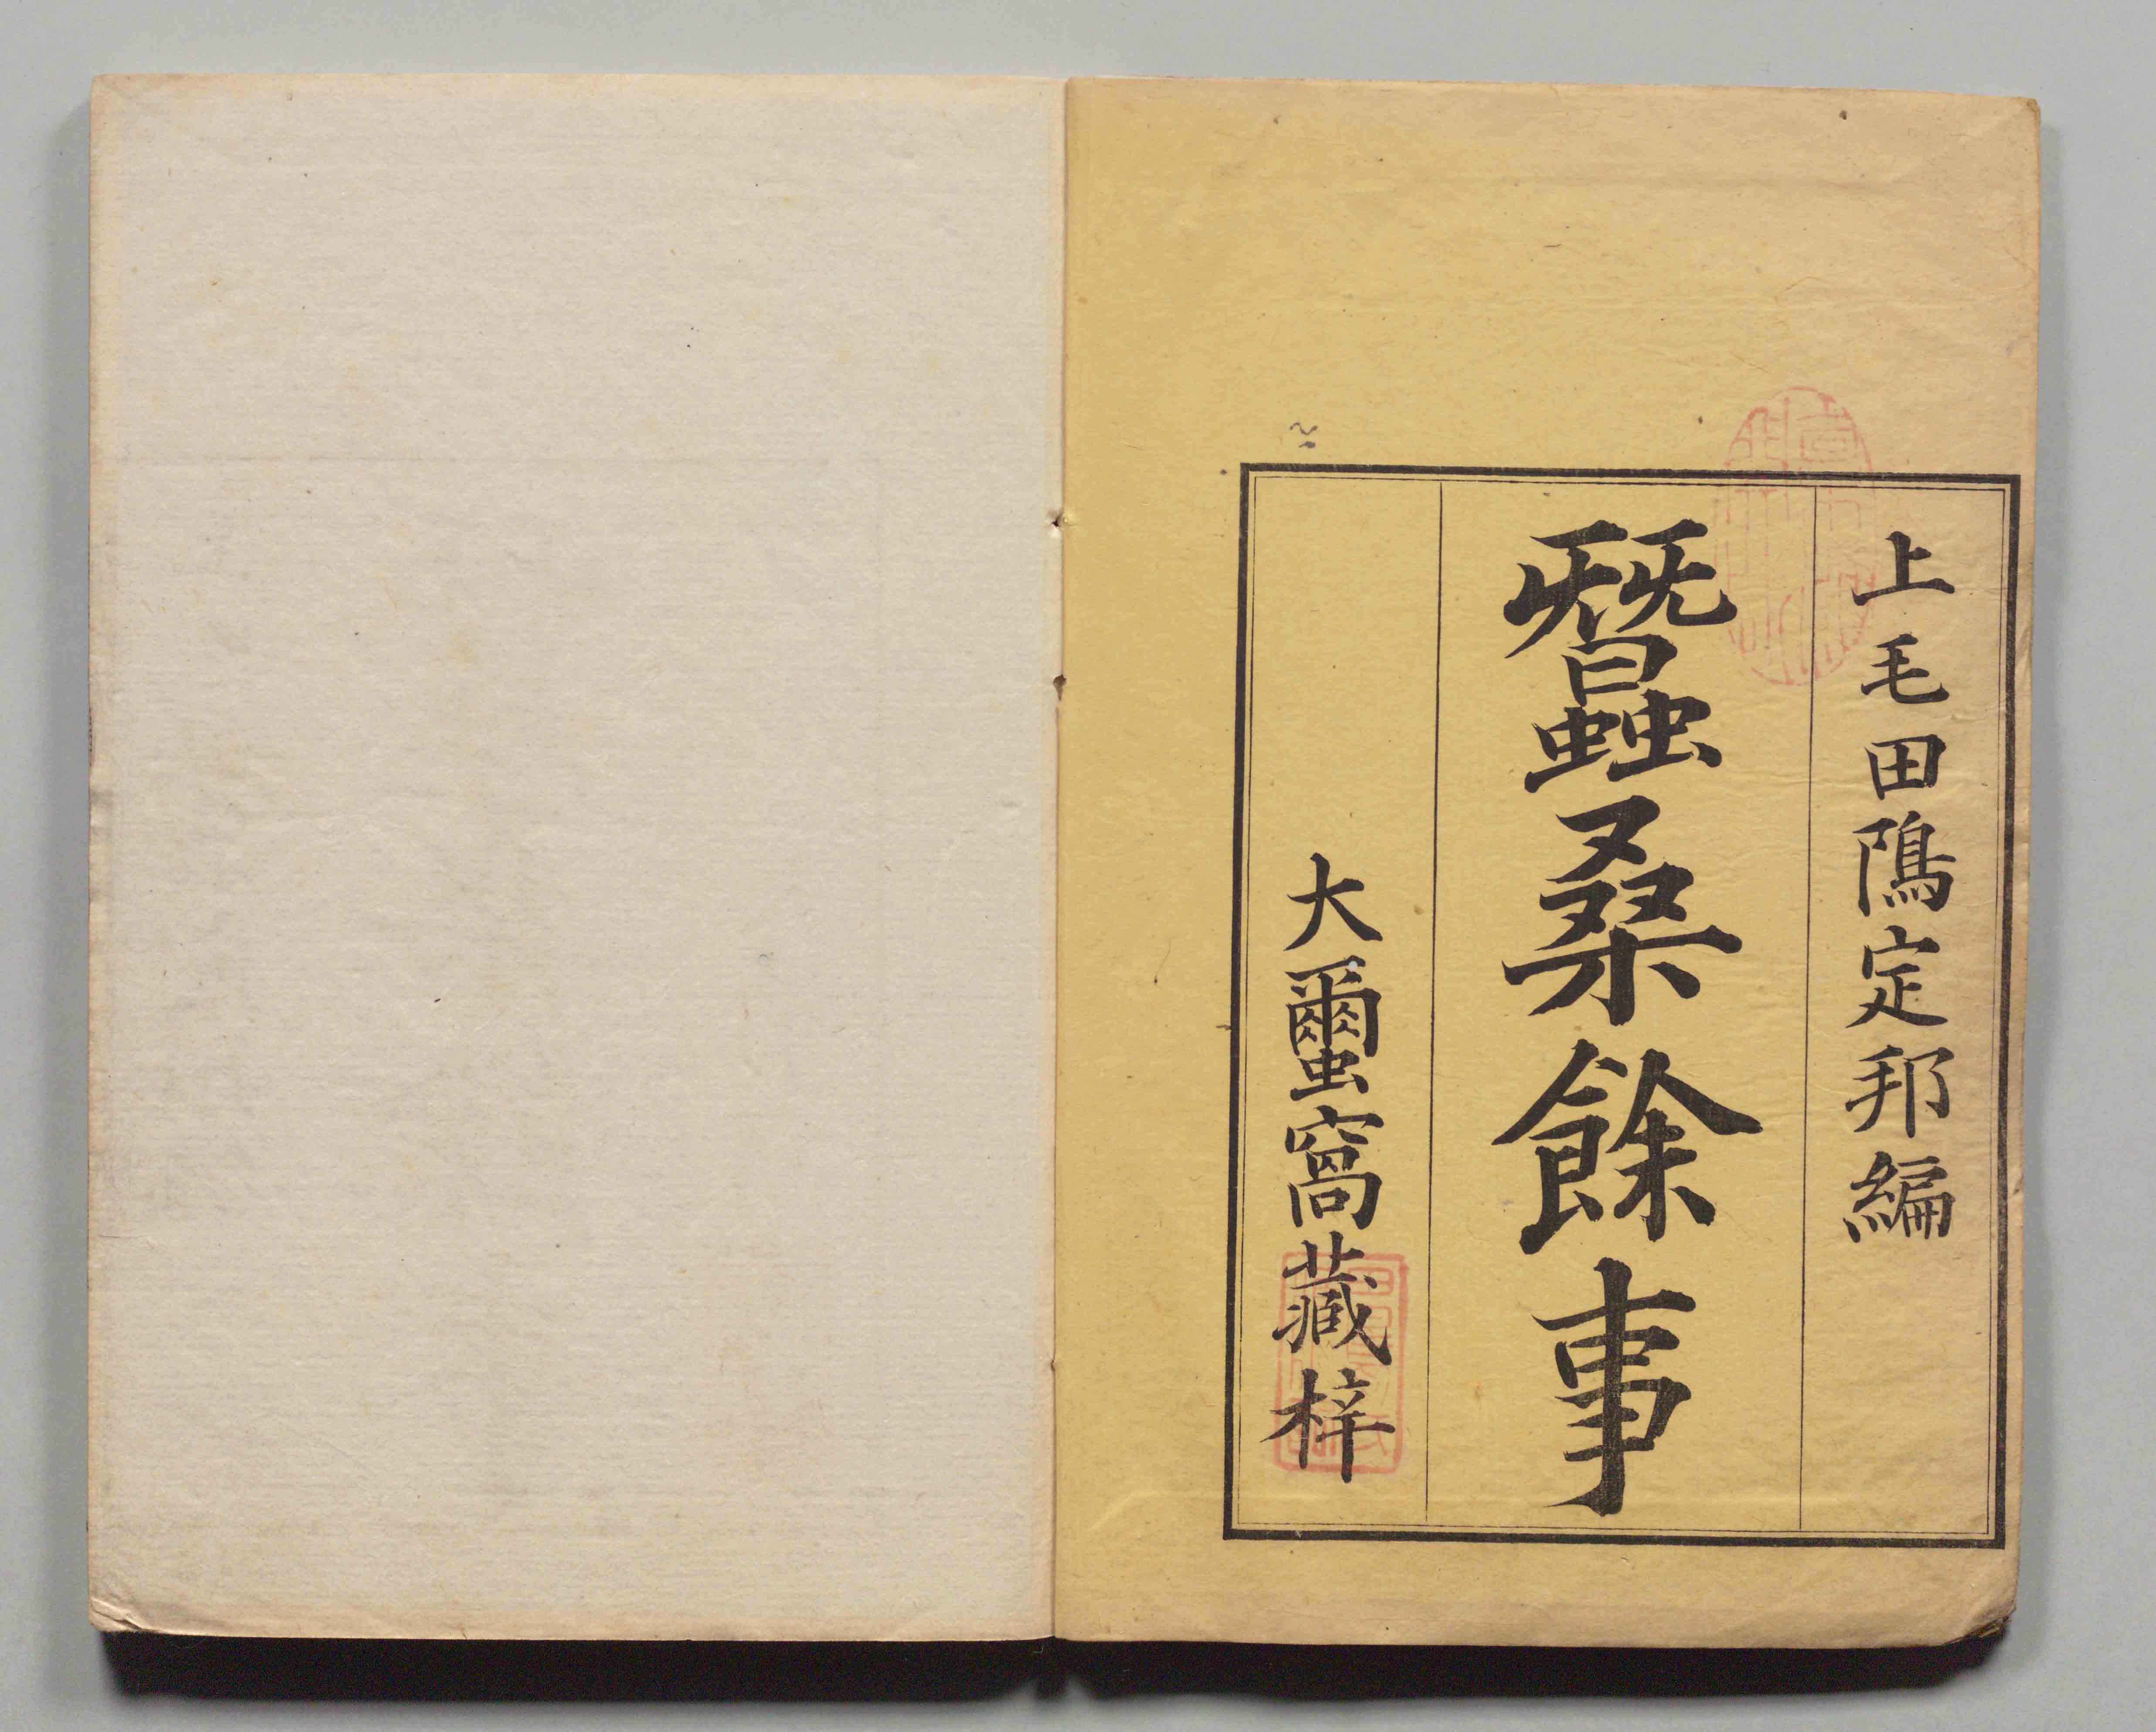 上毛田隝定邦編
蠶桒餘事
大𧕦窩藏梓